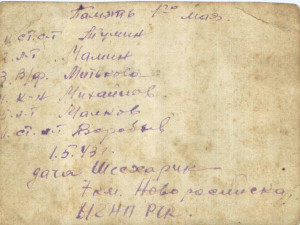 Память 1го мая.
1. ст.с-т Тумин
2. л-т Мамин
3. В/ф. Митькова
4. к-н Михайлов
5. л-т Малков
6. ст. л-т Воробьёв
1.5.43 г.
дача Шесхарис
7 км. Новороссийска